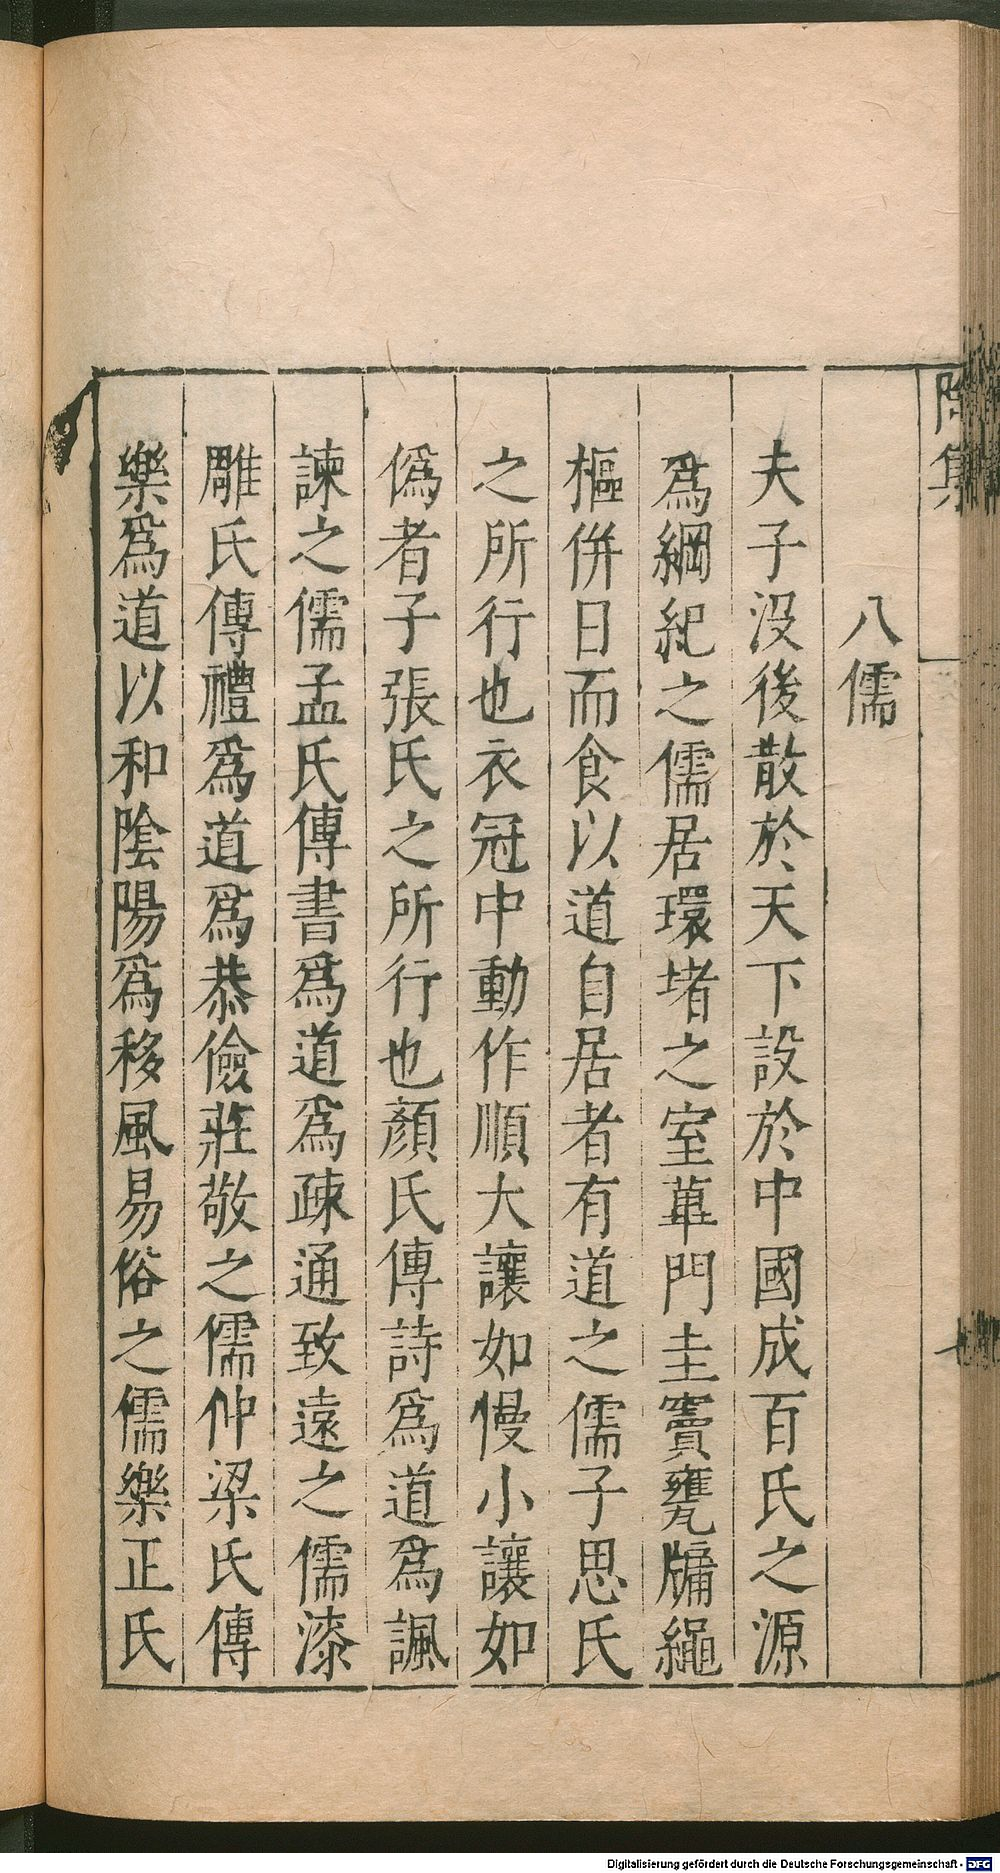 八儒
夫子没後散於天下設於中國成百氏之源
爲綱紀之儒居環堵之室蓽門圭竇甕牖繩
樞併日而食以道自居者有道之儒子思氏
之所行也衣冠中動作順大讓如慢小讓如
僞者子張氏之所行也顏氏傳詩爲道爲諷
諫之儒孟氏傳書爲道爲疎通致遠之儒漆
雕氏傳禮爲道爲恭儉莊敬之儒仲梁氏傳
樂爲道以和陰陽爲移風易俗之儒樂正氏
Digitalisierung gefördert durch die Deutsche Forschungsgemeinschaft - DFG